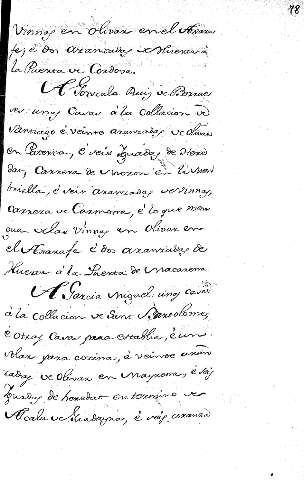 78
Vinnas en olivar en el Axaraf
fe, é dos aranzadas de Huerta à
la Puerta de Cordova.
A Gonzalo Ruiz de
unas Casas à la collacion de
Santiago é veinte aranzadas de olivar
en Paterna, é seis Yugadas de Heredad
dad, Carrera de Moron en
é seis aranzadas de Vinnas,
carrera de Carmona, é lo que men
gua de las Vinnas en olivar en
el Axarafe é dos aranzadas de
Huerta à la Puerta de Macarena
A Garcia Miguel unas casas
à la collacion de Sant Bartolome,
é otras Casas para establia, é un
solar para cocina, é veinte aran
zadas de olivar en é seis
Yugadas de heredat en termino de
Alcala de Guadayra, é seis aranza